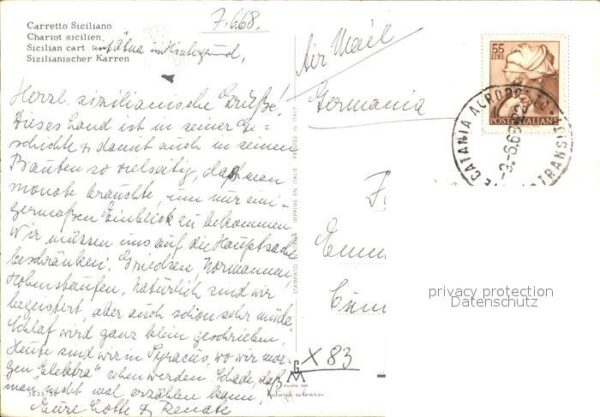 7.6.68.
Carretto Siciliano
Chariot sicilien
Sicilian cart mit Ätna im Hintergrund,
Sizilianischer Karren
Air Mail
Germania
55
LIRE
POSTE ITALIANE
CATANIA
Herzl. sizilianische Grüße!
Dieses Land ist in seiner Ge-
schichte & damit auch in seinen
Bauten so vielseitig, daß man
monate brauchte, um nur eini-
germaßen Einblick zu bekommen
Wir müssen uns auf die Hauptsache
beschränken: Griechen, Normannen,
Hohenstaufen, natürlich sind wir
begeistert, aber auch schon sehr müde,
Schlaf wird ganz klein geschrieben,
Heute sind wir in Syracus, wo wir
"Elektra" sehen werden. Schade, daß
man nicht mal erzählen kann,
Eure Lotte & Renate
X 83
privacy protection
Datenschutz